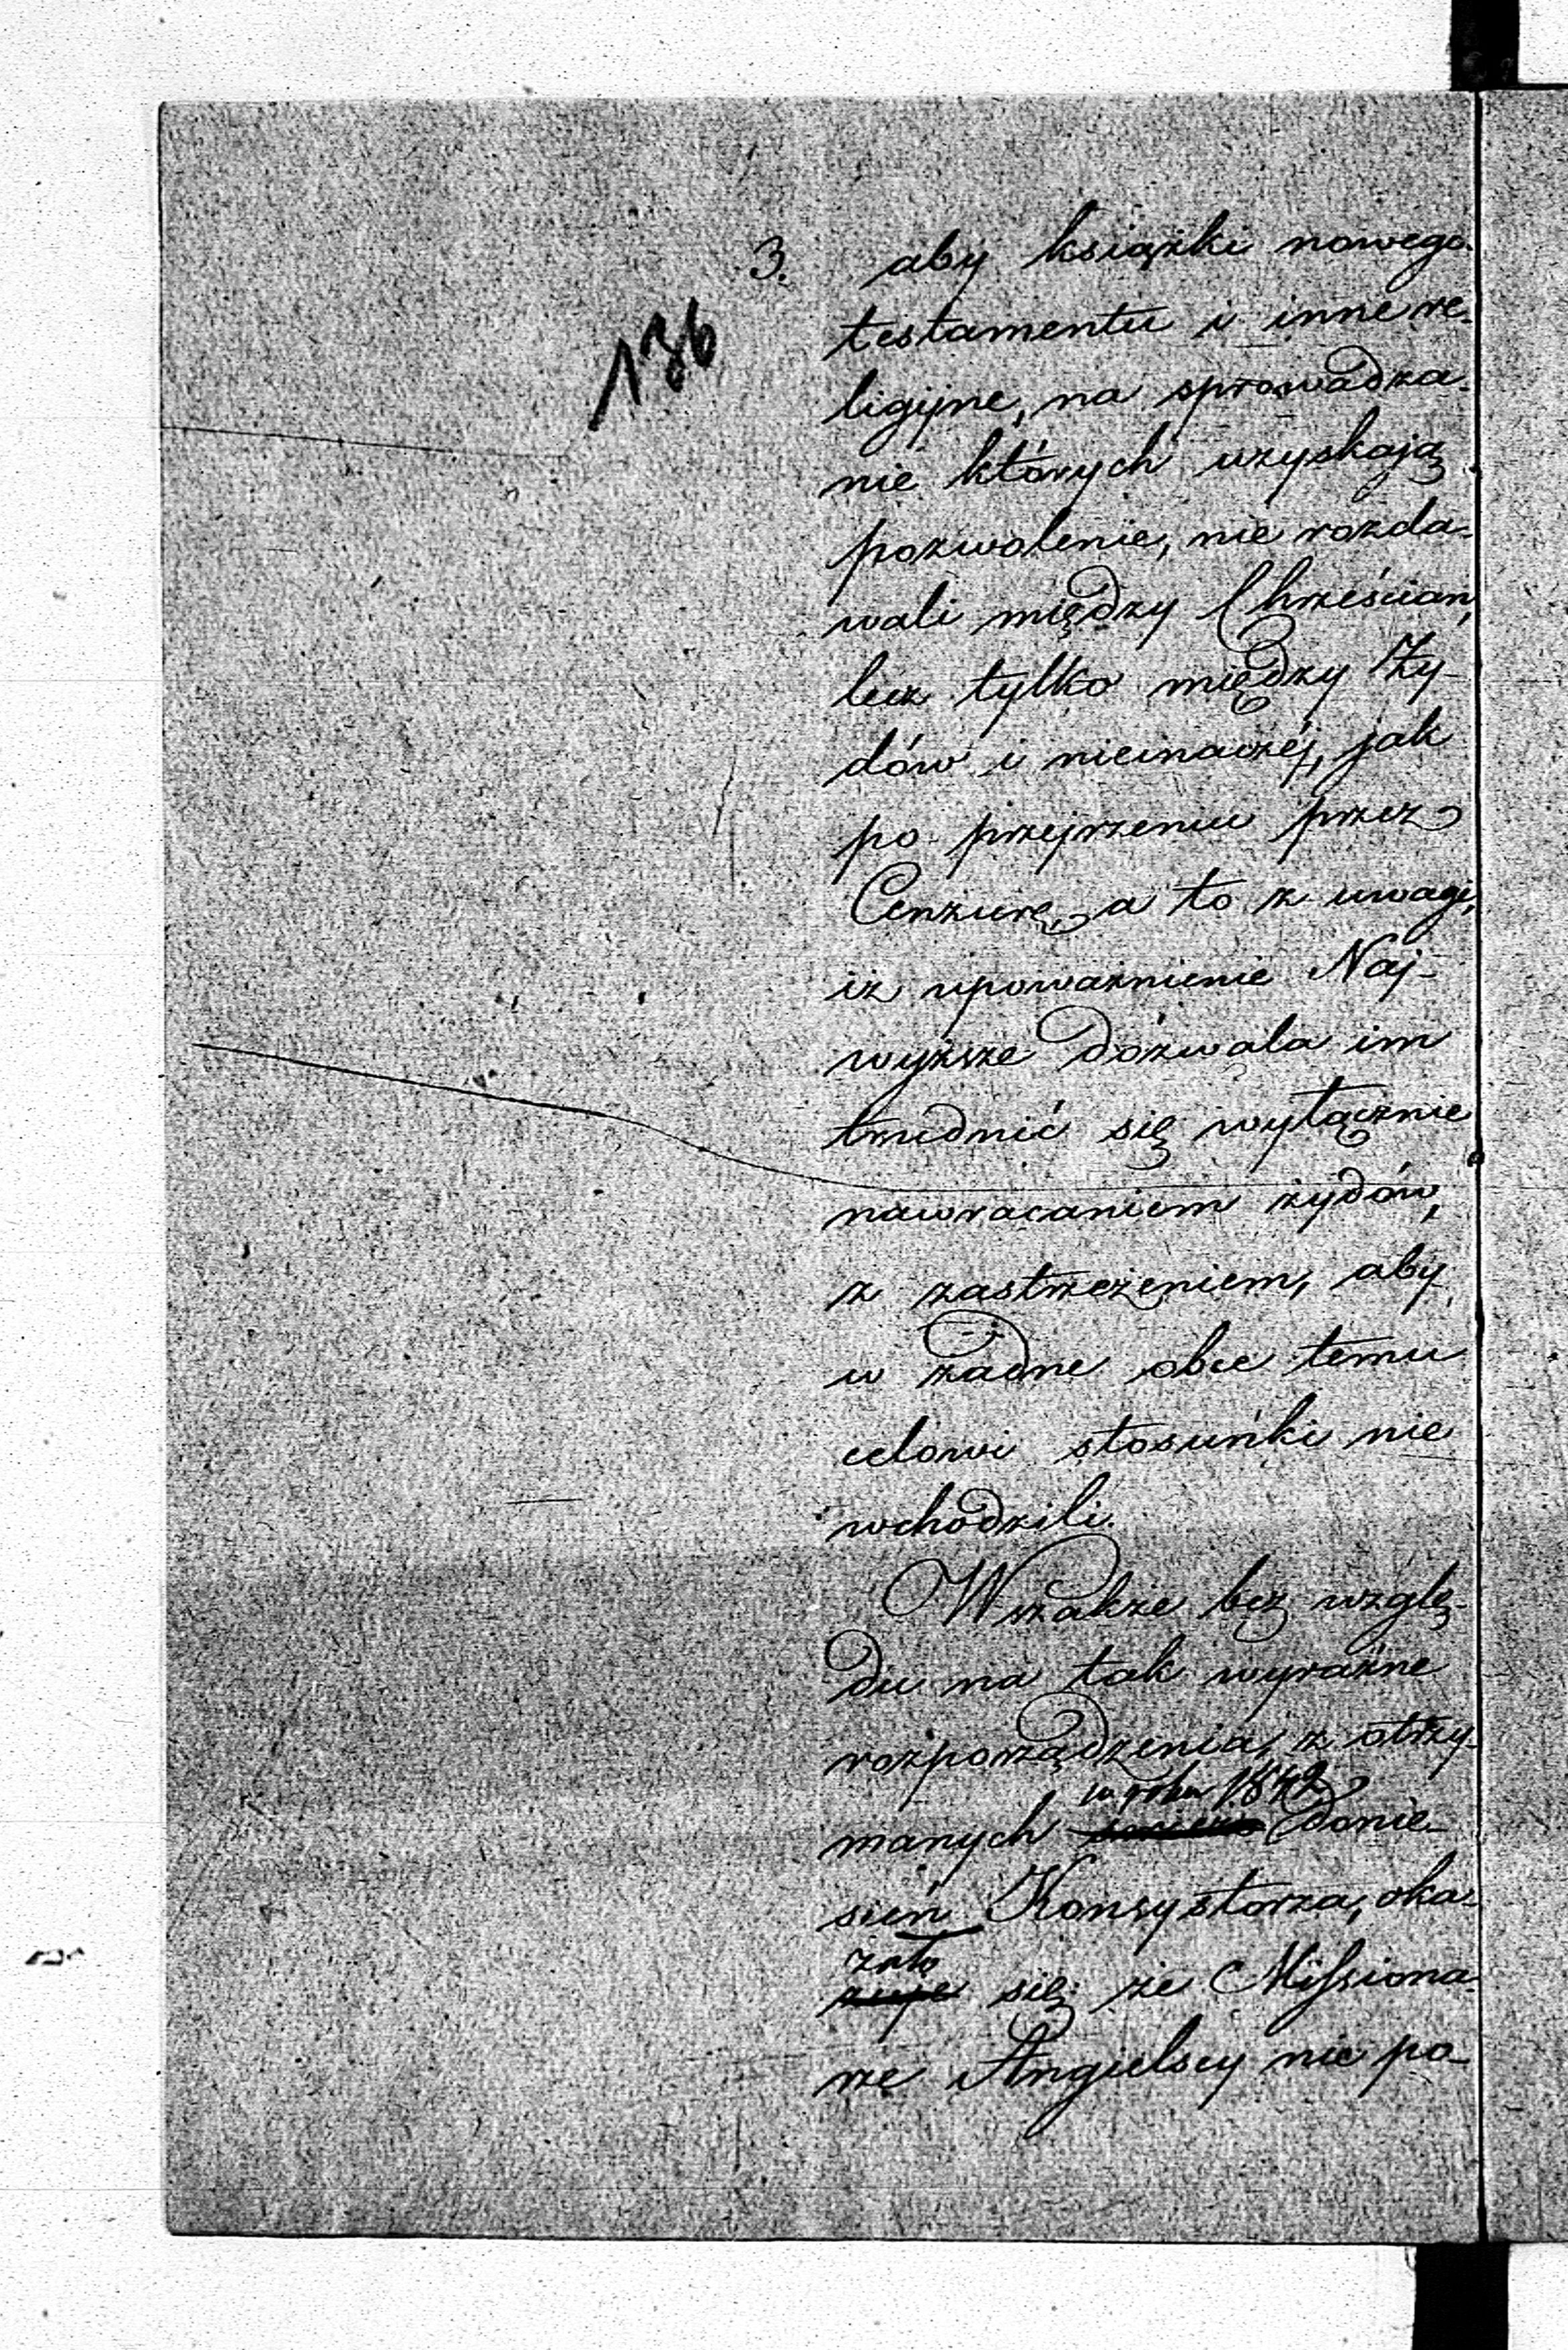 136
3. aby książki nowego
testamentu i inne re-
ligijne, na sprowadza-
nie których uzyskają
pozwolenie, nie rozda-
wali między Chrześcian,
lecz tylko między Ży-
dów i nieinaczéj, jak
po przejrzeniu przez
Cenzurę, a to z uwagi,
iż upoważnienie Naj-
wyższe dozwala im
trudnić się wyłącznie
nawracaniem żydów,
z zastrzeżeniem, aby
w żadne obce temu
celowi stosuńki nie
wchodzili.
Wszakże bez wzglę-
du na tak wyraźne
rozporządzenia, z otrzy-
w roku 1842
manych donie-
sień Konsystorza, oka-
zało
zuje się że Missiona-
rze Angielscy nie po-